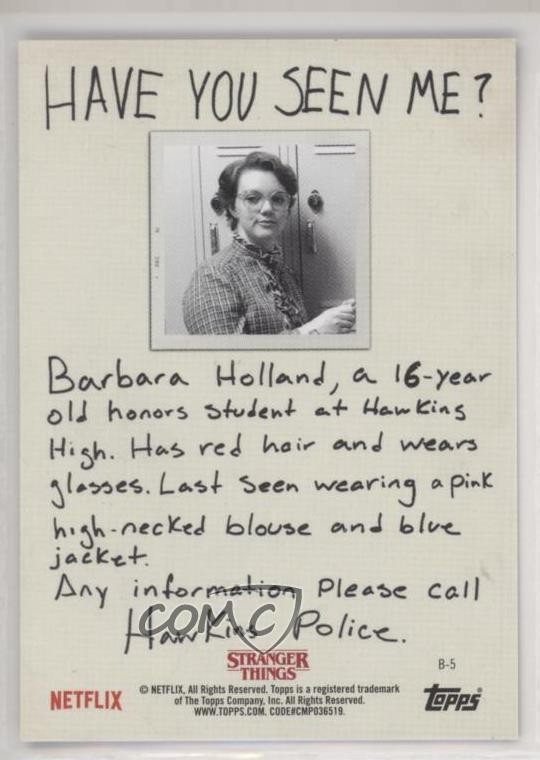 HAVE YOU SEEN ME?
Barbara Holland, a 16-year
old honors student at Hawking
High. Has red hair and wears
glasses. Last seen wearing a pink
high-necked blouse and blue
jacket.
Any information Please call
Hawkins Police.
COMC
STRANGER
THINGS
B-5
NETFLIX
© NETFLIX, All Rights Reserved. Topps is a registered trademark
of The Topps Company, Inc. All Rights Reserved.
WWW.TOPPS.COM. CODE#CMP036519.
topps